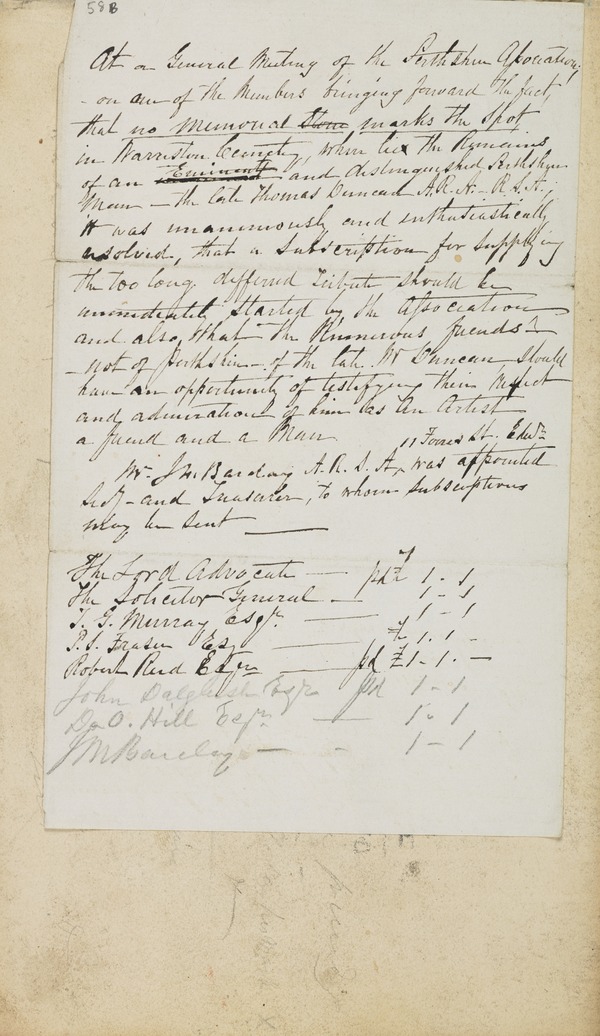 58B
At a General Meeting of the Perthshire Association,
- on one of the Members bringing forward the fact,
that no Memorial Stone marks the spot
in Warriston Cemetery, where lies the Remains
of an Eminent and distinguished Perthshire
Man - the late Thomas Duncan A.R.A. - R.S.A.,
it was unanimously and enthusiastically
resolved, that a Subscription for supplying
the too long differred Tribute should be
immediately started by the Association
and also, that the Numerous friends -
- not of Perthshire - of the late Mr Duncan should
have an opportunity of testifying their respect
and admiration of him as An Artist
a friend and a Man
11 Forres St. Edinr
Mr. J M Barclay A.R.S.A, was appointed
Secy - and Treasurer, to whom subscriptions
may be sent
The Lord Advocate - pd £ 1 - 1
The Solicitor General - 1 - 1
T. G. Murray Esqr. 1 - 1
P.S. Fraser Esq £ 1. 1 -
Robert Reid Esqr pd £1 - 1. -
John Dalgleish Esqr pd 1 - 1
D. O. Hill Esqr 1 - 1
J M Barclay - - 1 - 1